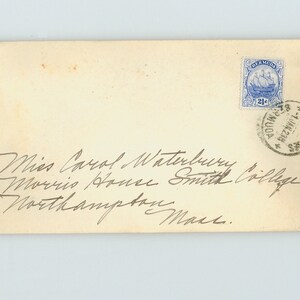 BERMUDA
2½d
BERMUDA
Miss Carol Waterbury
Morris House Smith College
Northampton
Mass.